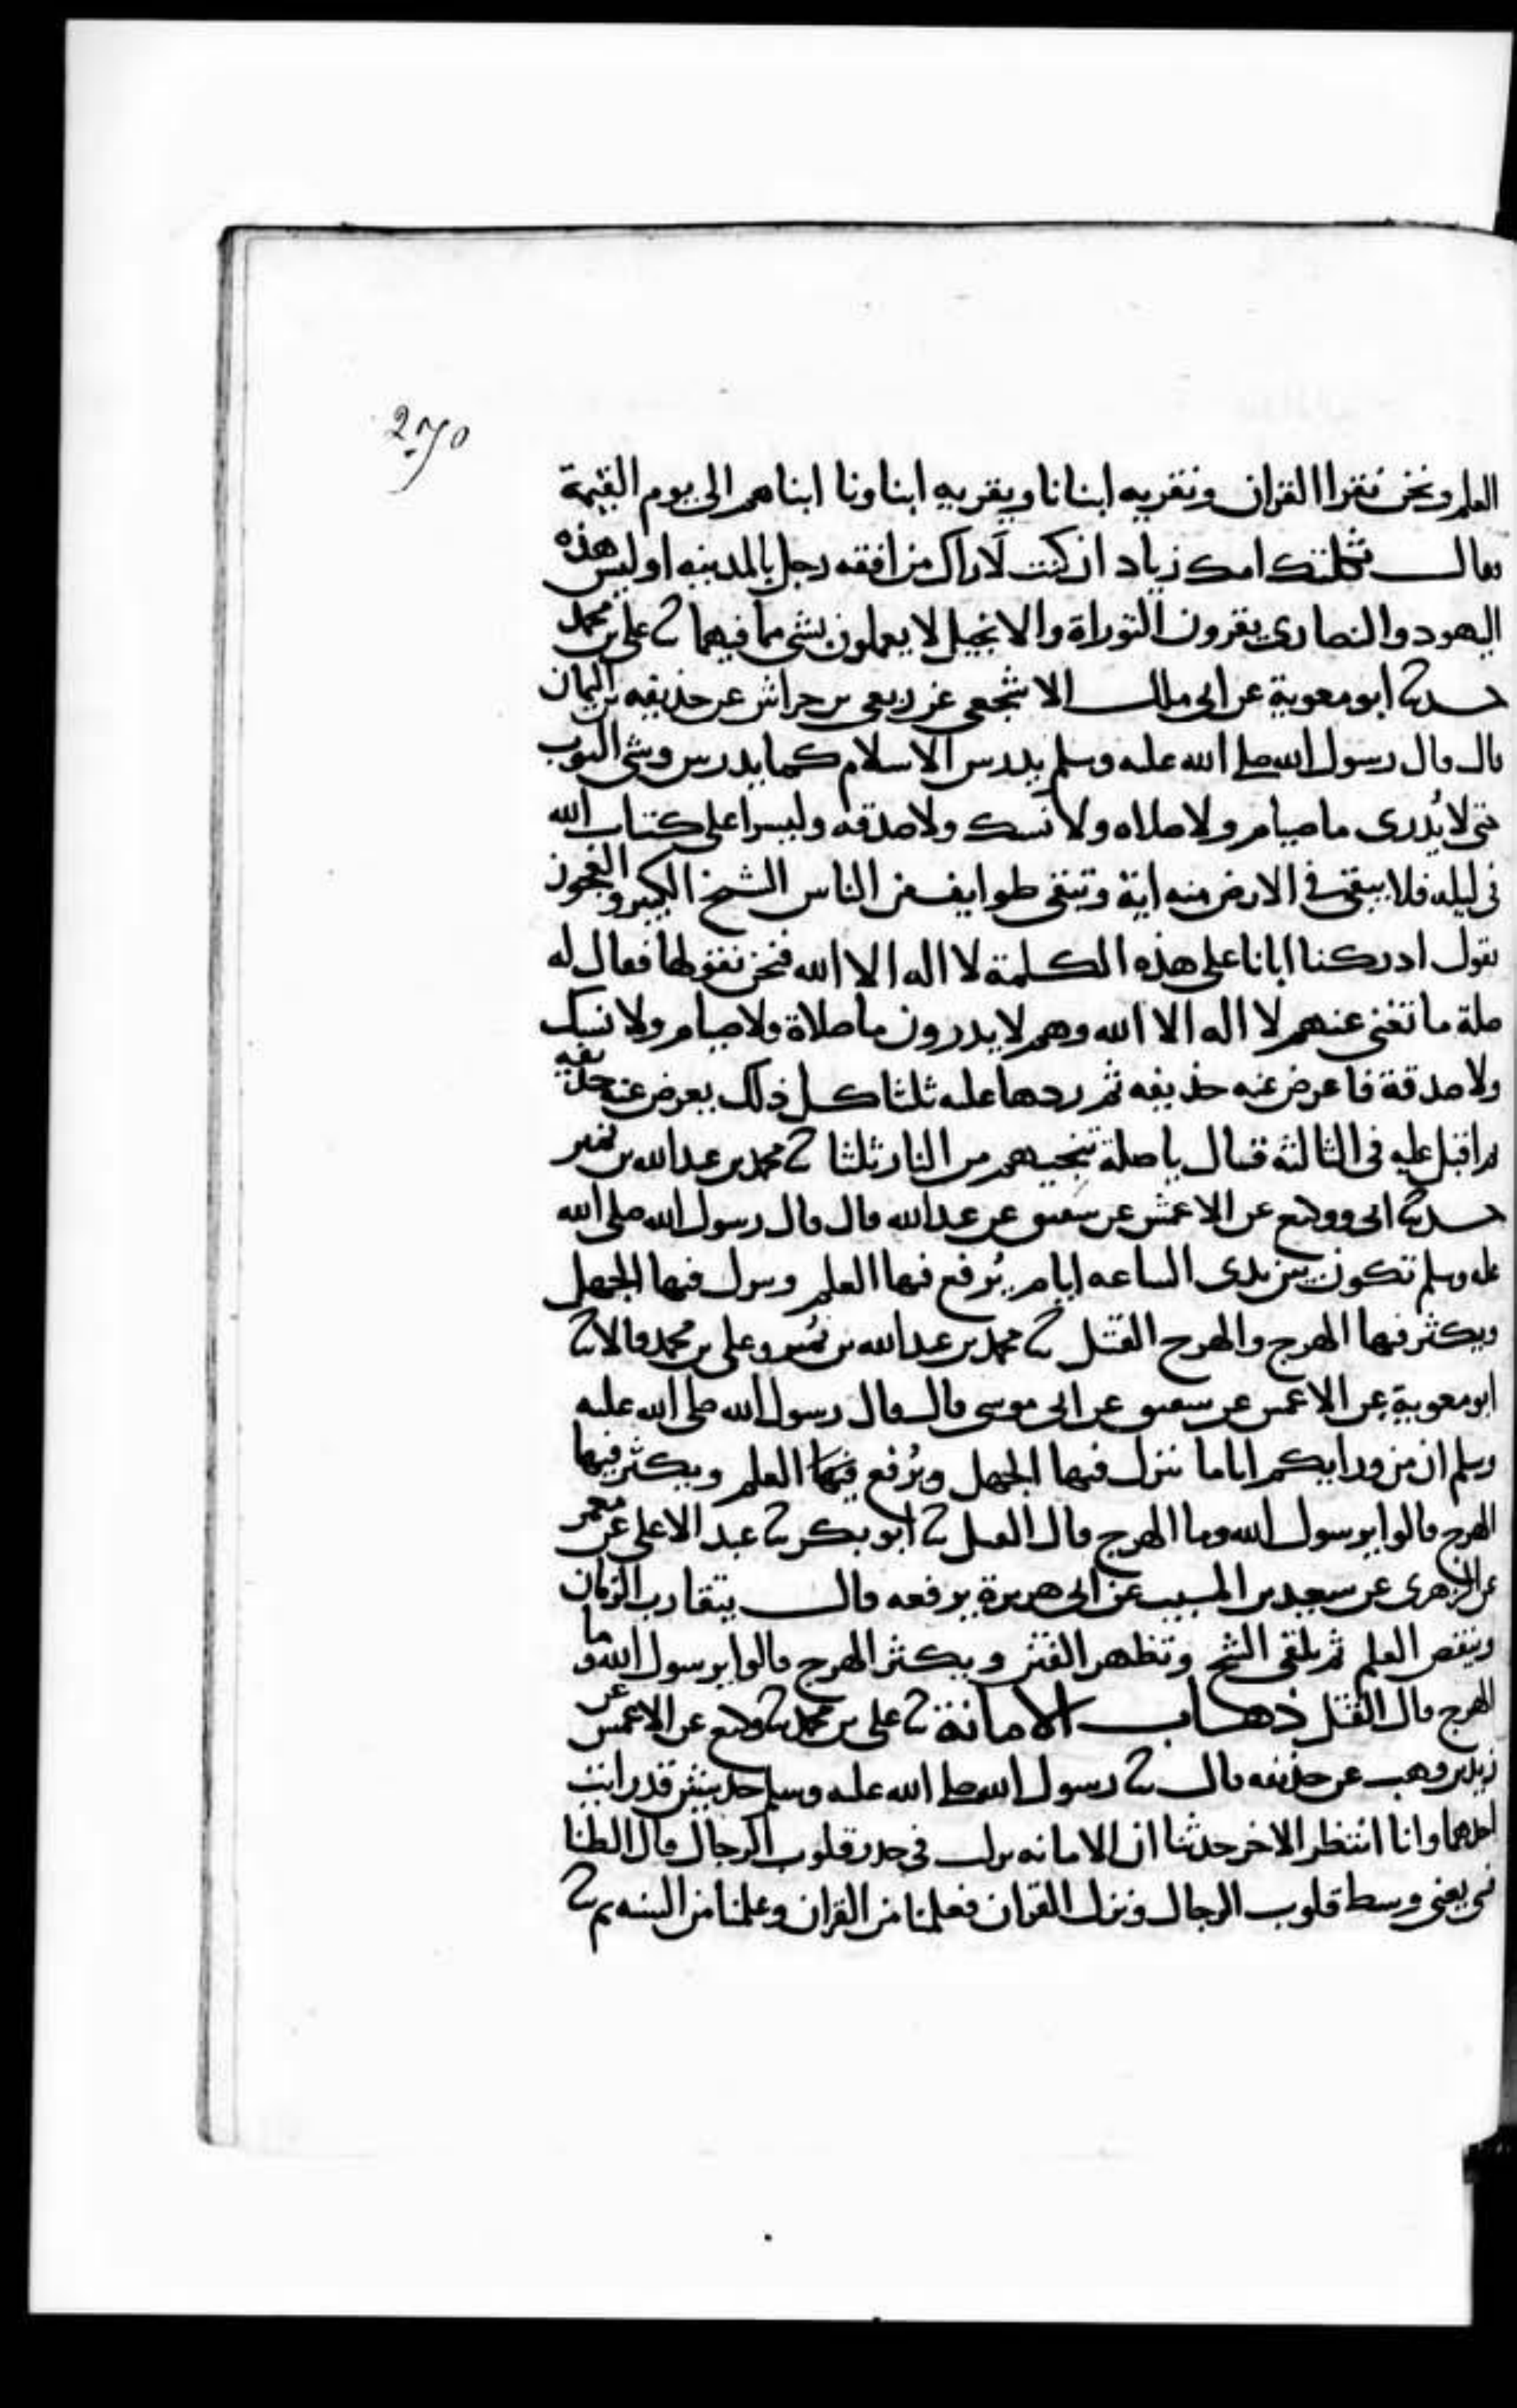 270
العلم ونحن نقرا القران ونقريه ابنانا ويقريه ابناونا ابناهم الى يوم القيمة
فقال ثكلتك امك زياد ان كنت لاراك من افقه رجل بالمدينه او ليس هذه
اليهود والنصارى يقرون التوراة والانجيل لا يعملون بشى مما فيهما ثنا على بن محمد
حدثنا ابو معوية عن ابى مالك الاشجعى عن ربعى بن حراش عن حذيفه بن اليمان
قال قال رسول الله صلى الله عليه وسلم يدرس الاسلام كما يدرس وشى الثوب
حتى لا يُدرى ما صيام ولا صلاه ولا نسك ولا صدقه وليسرا على كتاب الله
فى ليله فلا يبقى فى الارض منه اية وتبقى طوايف من الناس الشيخ الكبير والعجوز
تقول ادركنا ابانا على هذه الكلمة لا اله الا الله فنحن نقولها فقال له
صلة ما تغنى عنهم لا اله الا الله وهم لا يدرون ما صلاة ولا صيام ولا نسك
ولا صدقة فاعرض عنه حذيفه ثم ردها عليه ثلثا كل ذلك يعرض عنه حذيفه
ثم اقبل عليه فى الثالثة فقال يا صلة تنجيهم من النار ثلثا ثنا محمد بن عبد الله بن نمير
حدثنا ابى ووكيع عن الاعمش عن شقيق عن عبد الله قال قال رسول الله صلى الله
عليه وسلم تكون بين يدى الساعه ايام يُرفع فيها العلم وينزل فيها الجهل
ويكثر فيها الهرج والهرج القتل ثنا محمد بن عبد الله بن نمير وعلى بن محمد قالا ثنا
ابو معوية عن الاعمش عن شقيق عن ابى موسى قال قال رسول الله صلى الله عليه
وسلم ان من ورايكم اياما ينزل فيها الجهل ويُرفع فيها العلم ويكثر فيها
الهرج قالوا يرسول الله وما الهرج قال القتل ثنا ابو بكر ثنا عبد الاعلى عن معمر
عن الزهرى عن سعيد بن المسيب عن ابى هريرة يرفعه قال يتقارب الزمان
وينقص العلم ثم يلقى الشح وتظهر الفتن ويكثر الهرج قالوا يرسول الله وما
الهرج قال القتل ذهاب الامانة ثنا على بن محمد ثنا وكيع عن الاعمش عن
زيد بن وهب عن حذيفه قال ثنا رسول الله صلى الله عليه وسلم حديثين قد رايت
احدهما وانا انتظر الاخر حدثنا ان الامانه نزلت فى جدر قلوب الرجال قال الطنا
فسى يعنى وسط قلوب الرجال ونزل القران فعلمنا من القران وعلمنا من السنه ثم ثنا